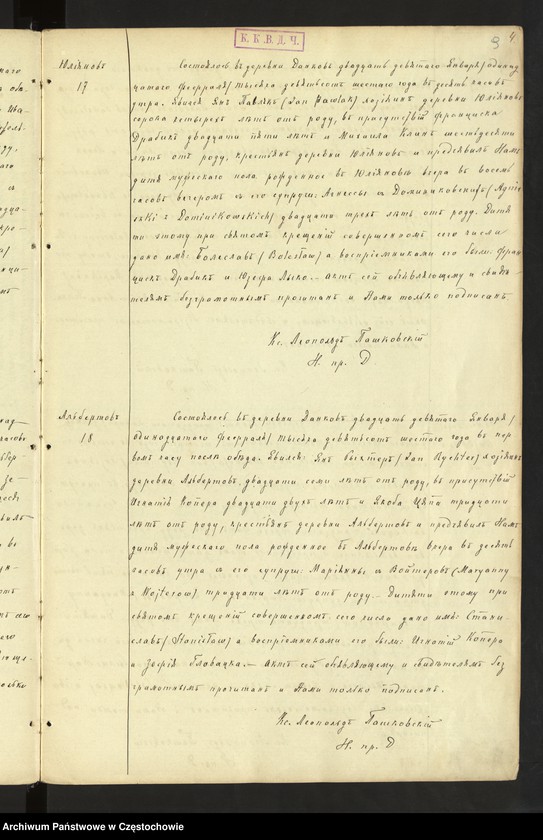 К. К. В. Д. Ч.
4
Юліяновъ
17
Состоялось въ деревни Данковъ двадцать девятаго Января/ одинад
цатаго Февраля/ тысяча девятьсотъ шестаго года въ десять часовъ
утра. Явился Янъ Павлякъ (Jan Pawlak) хозяинъ деревни Юліяновъ
сорока четырехъ лѣтъ отъ роду, въ присутствіи Франциска
Драбикъ двадцати пяти лѣтъ и Михаила Клинъ шестьдесяти
лѣтъ отъ роду, крестьянъ деревни Юліяновъ и предъявилъ Намъ
дитя мужескаго пола рожденное въ Юліяновѣ вчера въ восемь
часовъ вечеромъ съ его супруги: Агнессы съ Доминиковскихъ (Agnie
szki z Dominikowskich) двадцати трехъ лѣтъ отъ роду. Дитя
ти этому при святомъ крещеніи совершенномъ сего числа
дано имя: Болеславъ (Bolesław) а воспріемниками его были: Фран
цискъ Драбикъ и Юзефа Лыко. – Актъ сей объявляющему и свидѣ
телямъ безграмотнымъ прочитанъ и Нами только подписанъ.
Кс. Леопольдъ Пашковскій
Н. пр. Д
Альбертовъ
18
Состоялось въ деревни Данковъ двадцать девятаго Января/
одинадцатаго Февраля/ тысяча девятьсотъ шестаго года въ пер
вомъ часу послѣ обѣда. Явился: Янъ Рыхтеръ (Jan Rychter) хозяинъ
деревни Альбертовъ, двадцати семи лѣтъ отъ роду, въ присутствіи
Игнатія Копера двадцати двухъ лѣтъ и Якоба Цѣпа тридцати
лѣтъ отъ роду, крестьянъ деревни Альбертовъ и предъявилъ Намъ
дитя мужескаго пола рожденное въ Альбертовѣ вчера въ десять
часовъ утра съ его супруги: Маріянны съ Войтеровъ (Maryanny
z Wojterow) тридцати лѣтъ отъ роду. – Дитяти этому при
святомъ крещеніи совершенномъ сего числа дано имя: Стани
славъ (Stanisław) а воспріемниками его были: Игнатій Копера
а Зофія Гловацка. – Актъ сей объявляющему и свидѣтелямъ без
грамотнымъ прочитанъ и Нами только подписанъ.
Кс. Леопольдъ Пашковскій
Н. пр. Д
Archiwum Państwowe w Częstochowie